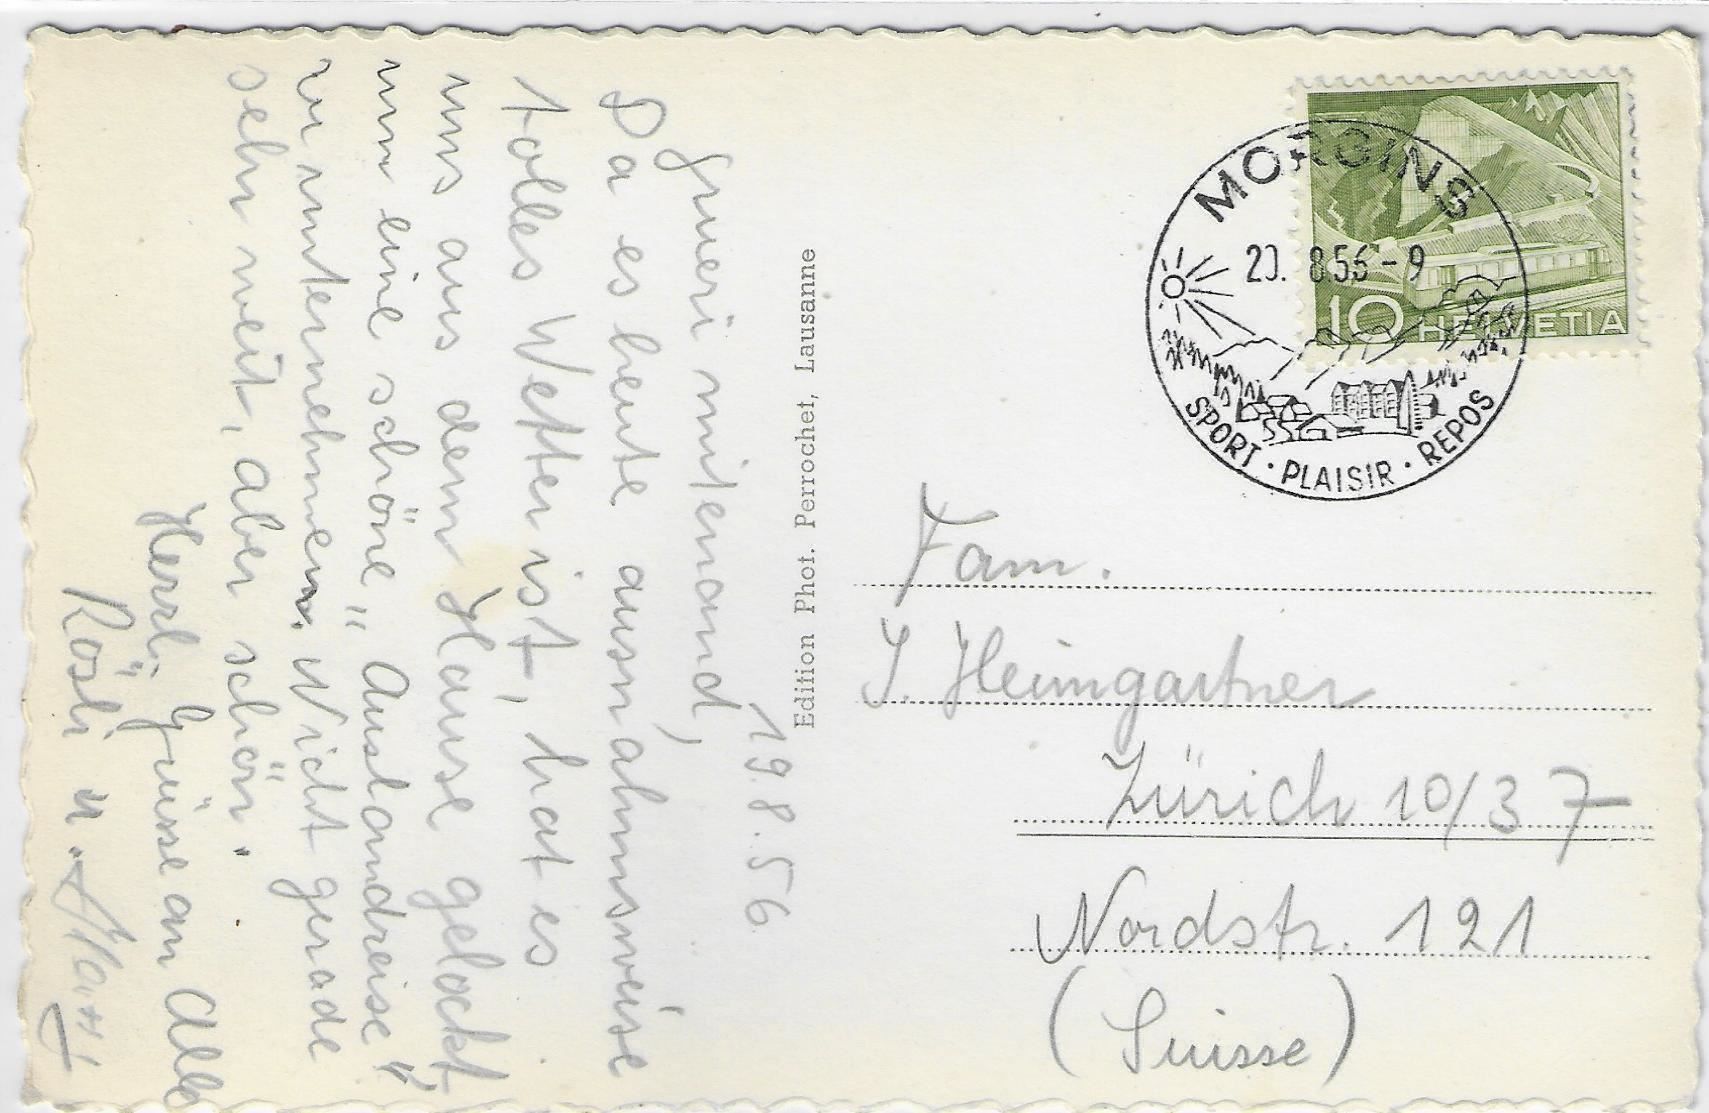 19.8.56.
Grueri mitenand,
Da es heute ausnahmsweise
tolles Wetter ist, hat es
uns aus dem Hause gelockt
um eine schöne „Auslandreise"
zu unternehmen. Nicht gerade
sehr weit, aber schön.
Herzl. Grüsse an Alle
Rösli u.
Edition Phot. Perrochet, Lausanne
MORGINS
20. 8.56-9
SPORT · PLAISIR · REPOS
10 HELVETIA
Fam.
J. Heimgartner
Zürich 10/37
Nordstr. 121
(Suisse)